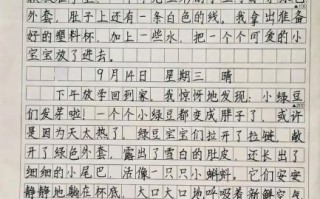 色外套，肚子上还有一条白色的线。我拿出准备
好的塑料杯，加上一些水，把一个个可爱的小
宝宝放了进去。
9月14日 星期三 晴
下午放学回到家，我惊讶地发现：小绿豆
们发芽啦！一个个小绿豆都变成胖子了，或许
是因为天太热了，绿豆宝宝们拉开了拉链，敞
开了绿色外套，露出了雪白的肚皮，还长出了
细细的小尾巴，活像一只只小蝌蚪。它们安安
静静地躺在杯底，大口大口地呼吸着新鲜空气